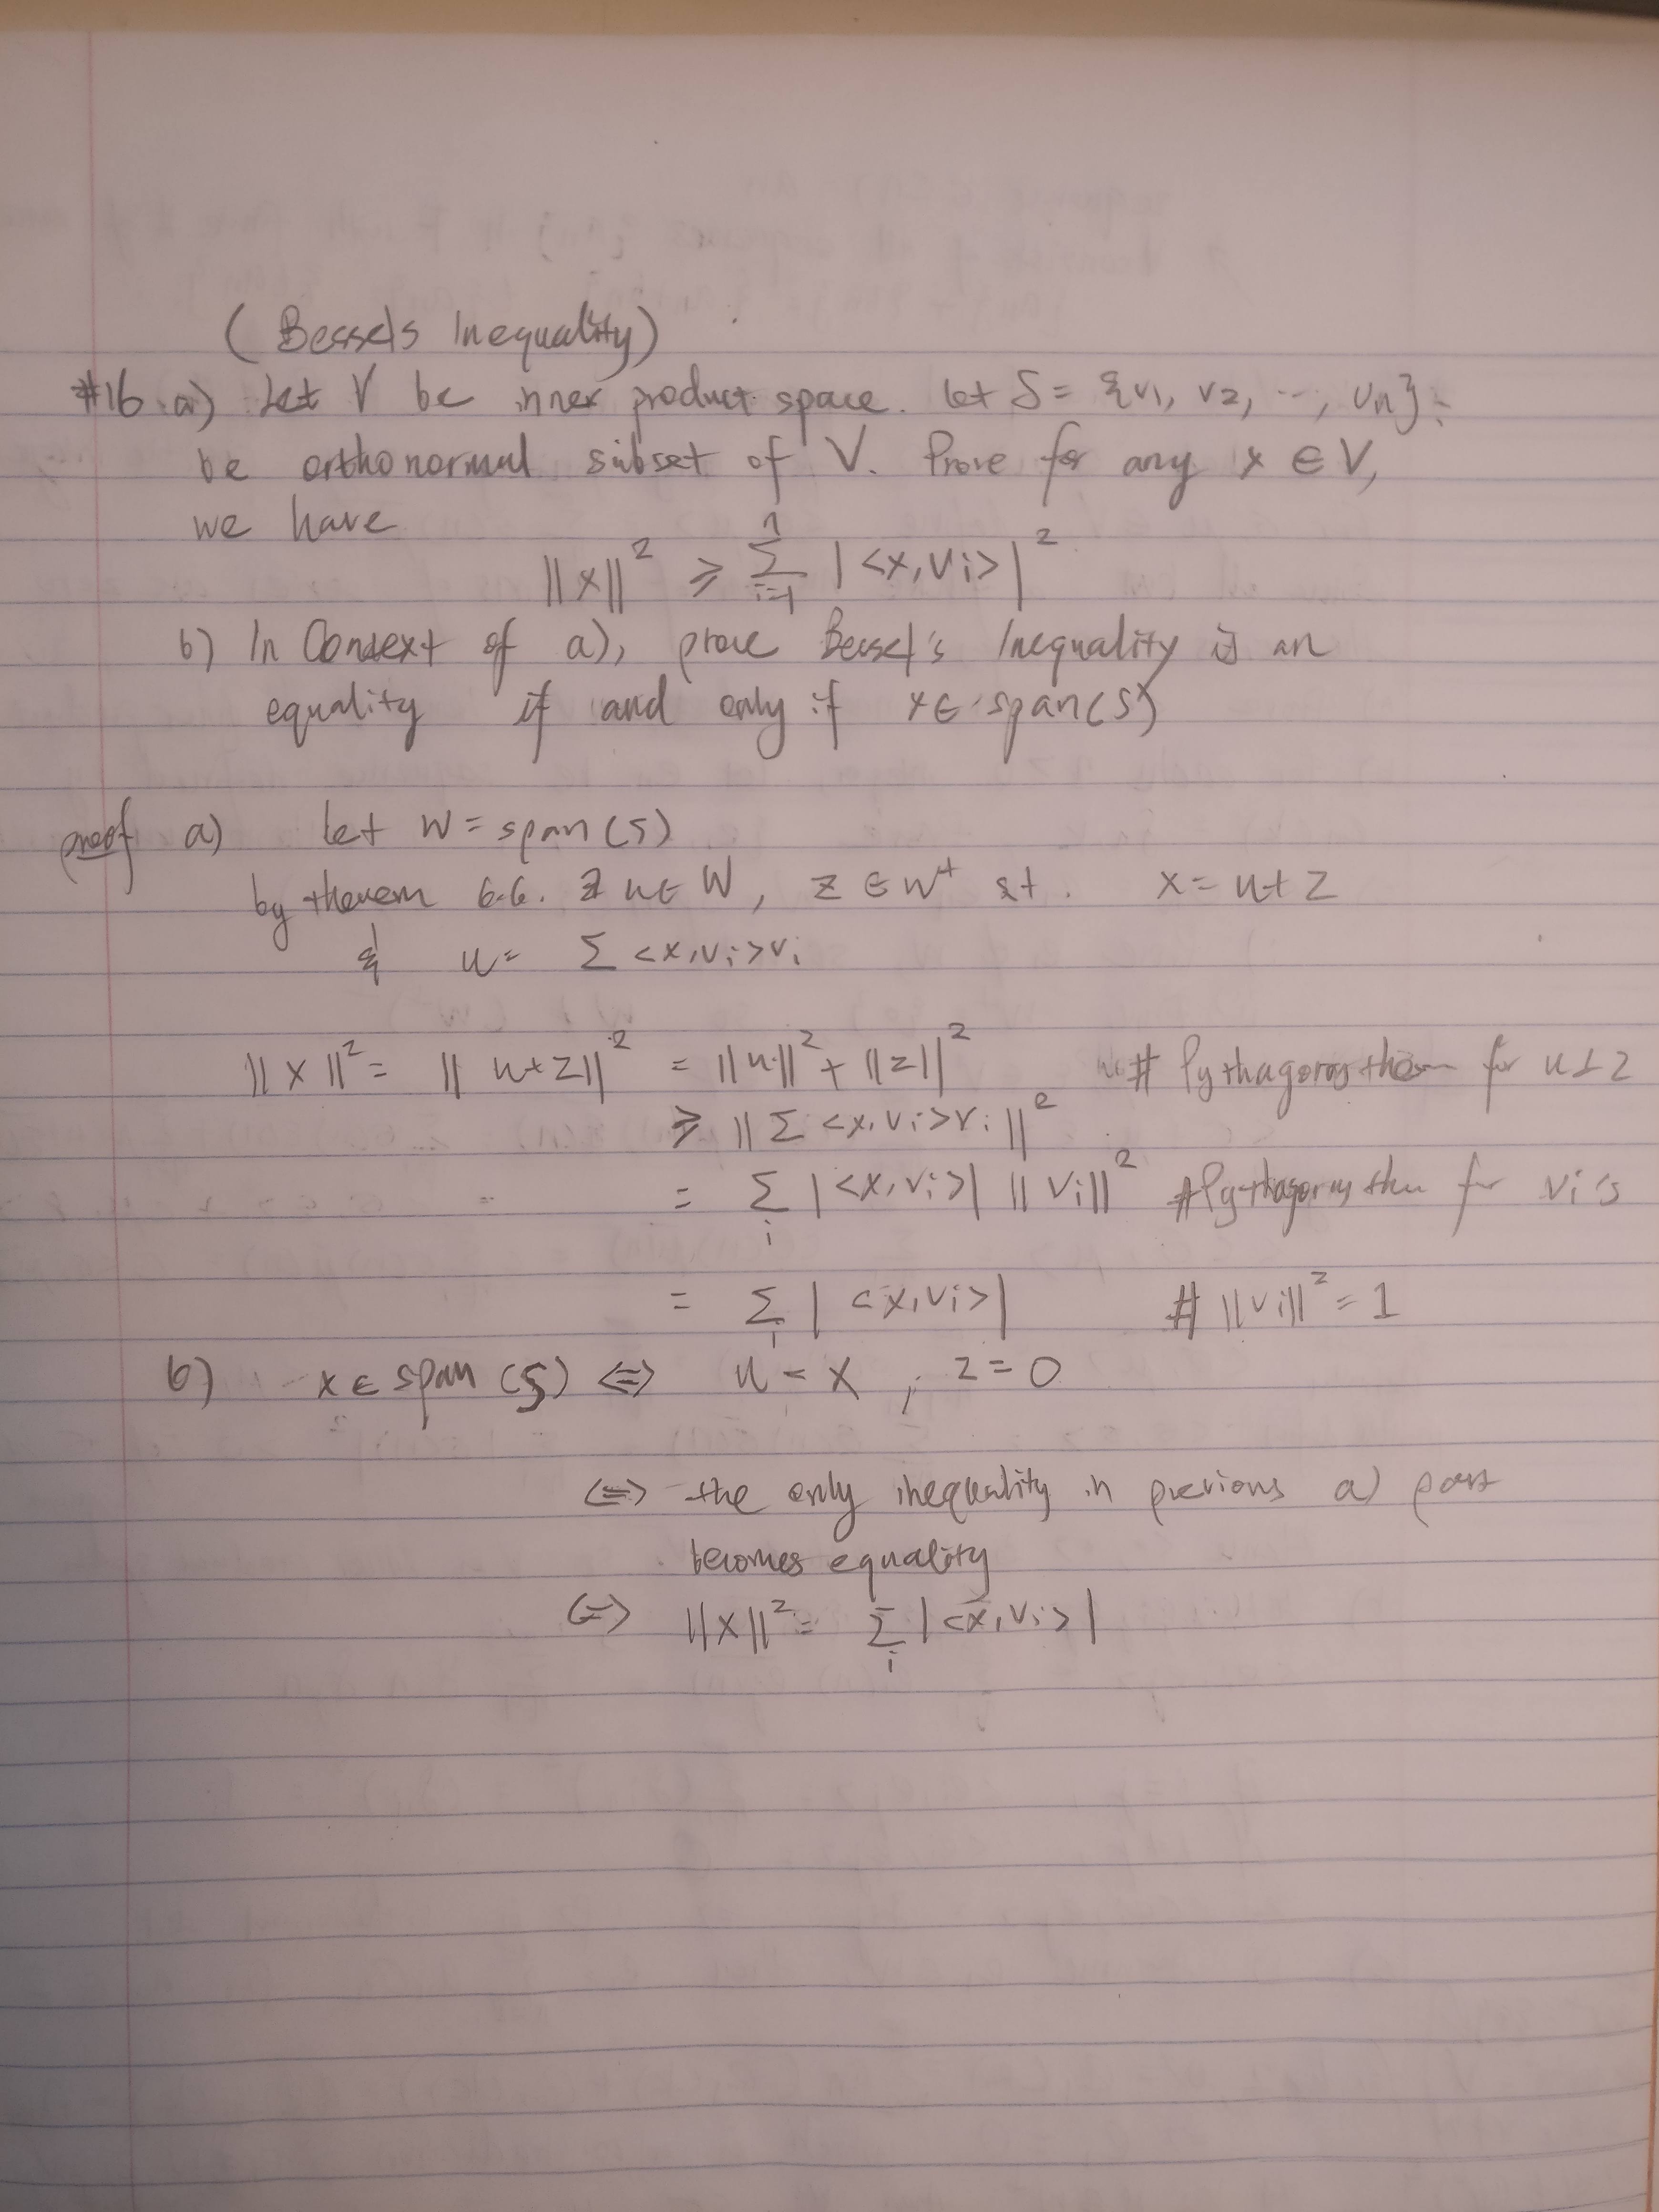 (Bessels Inequality)
#16 a) Let V be inner product space. let S = {v1, v2, ..., vn}
be orthonormal subset of V. Prove for any x ∈ V,
we have
||x||² ≥ Σ_{i=1}^{n} |<x,vi>|²
b) In Context of a), prove Bessel's Inequality is an
equality if and only if x ∈ span(S)
proof a) let W = span(S)
by theorem 6.6. ∃ u ∈ W, z ∈ W⊥ st. x = u+z
& u = Σ <x,vi>vi
||x||² = ||u+z||² = ||u||² + ||z||² # Pythagoras thm for u⊥z
≥ ||Σ <x,vi>vi||²
= Σ_i |<x,vi>| ||vi||² # Pythagoras thm for vi's
= Σ_i |<x,vi>| # ||vi||² = 1
b) x ∈ span(S) <=> u = x, z = 0
<=> the only inequality in previous a) part
becomes equality
<=> ||x||² = Σ_i |<x,vi>|